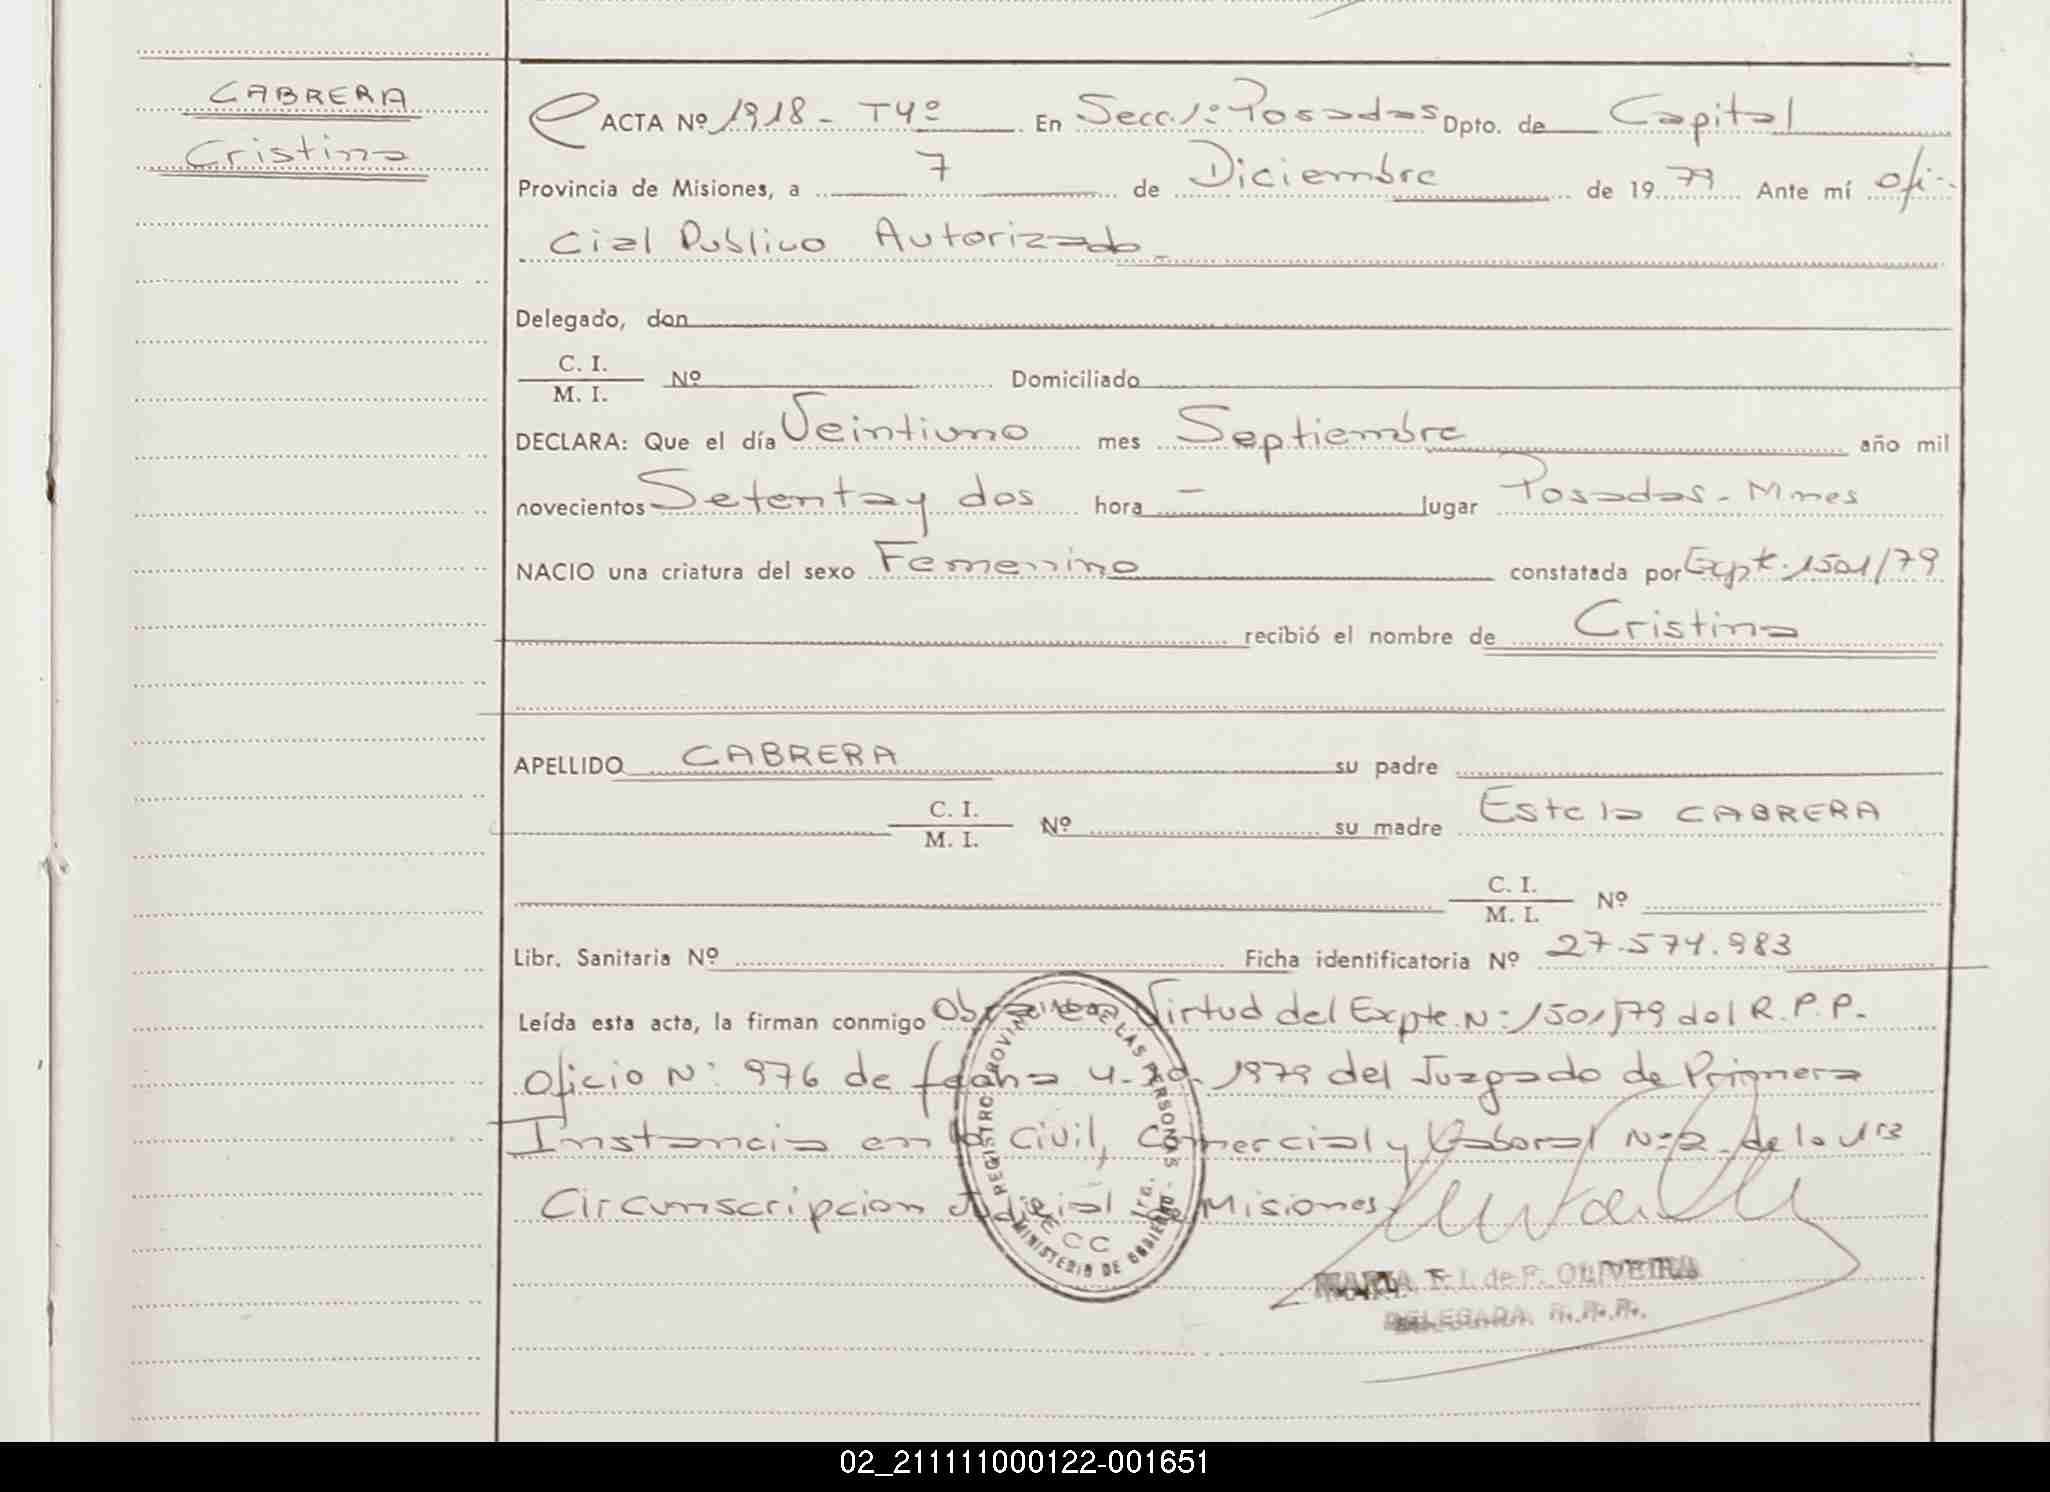 CABRERA
Cristina
ACTA Nº 1918 - T4º En Secc. 1º Posadas Dpto. de Capital
Provincia de Misiones, a 7 de Diciembre de 1979 Ante mí ofi-
cial Publico Autorizado -
Delegado, don
C. I.
M. I. Nº Domiciliado
DECLARA: Que el día Veintiuno mes Septiembre año mil
novecientos Setenta y dos hora - lugar Posadas - Mnes
NACIO una criatura del sexo Femenino constatada por Expt. 1501/79
recibió el nombre de Cristina
APELLIDO CABRERA su padre
C. I.
M. I. Nº su madre Estela CABRERA
C. I.
M. I. Nº
Libr. Sanitaria Nº Ficha identificatoria Nº 27.574.983
Leída esta acta, la firman conmigo Virtud del Expte. Nº 1501/79 del R.P.P.
Oficio Nº 976 de fecha 4-10-1979 del Juzgado de Primera
Instancia en lo Civil, Comercial y Laboral Nº 2 de la 1ra
Circunscripcion Judicial de Misiones.
REGISTRO PROVINCIAL DE LAS PERSONAS - MINISTERIO DE GOBIERNO
SECC 1ra.
MARIA F. I. de F. OLIVEIRA
DELEGADA R.P.P.
02_211111000122-001651